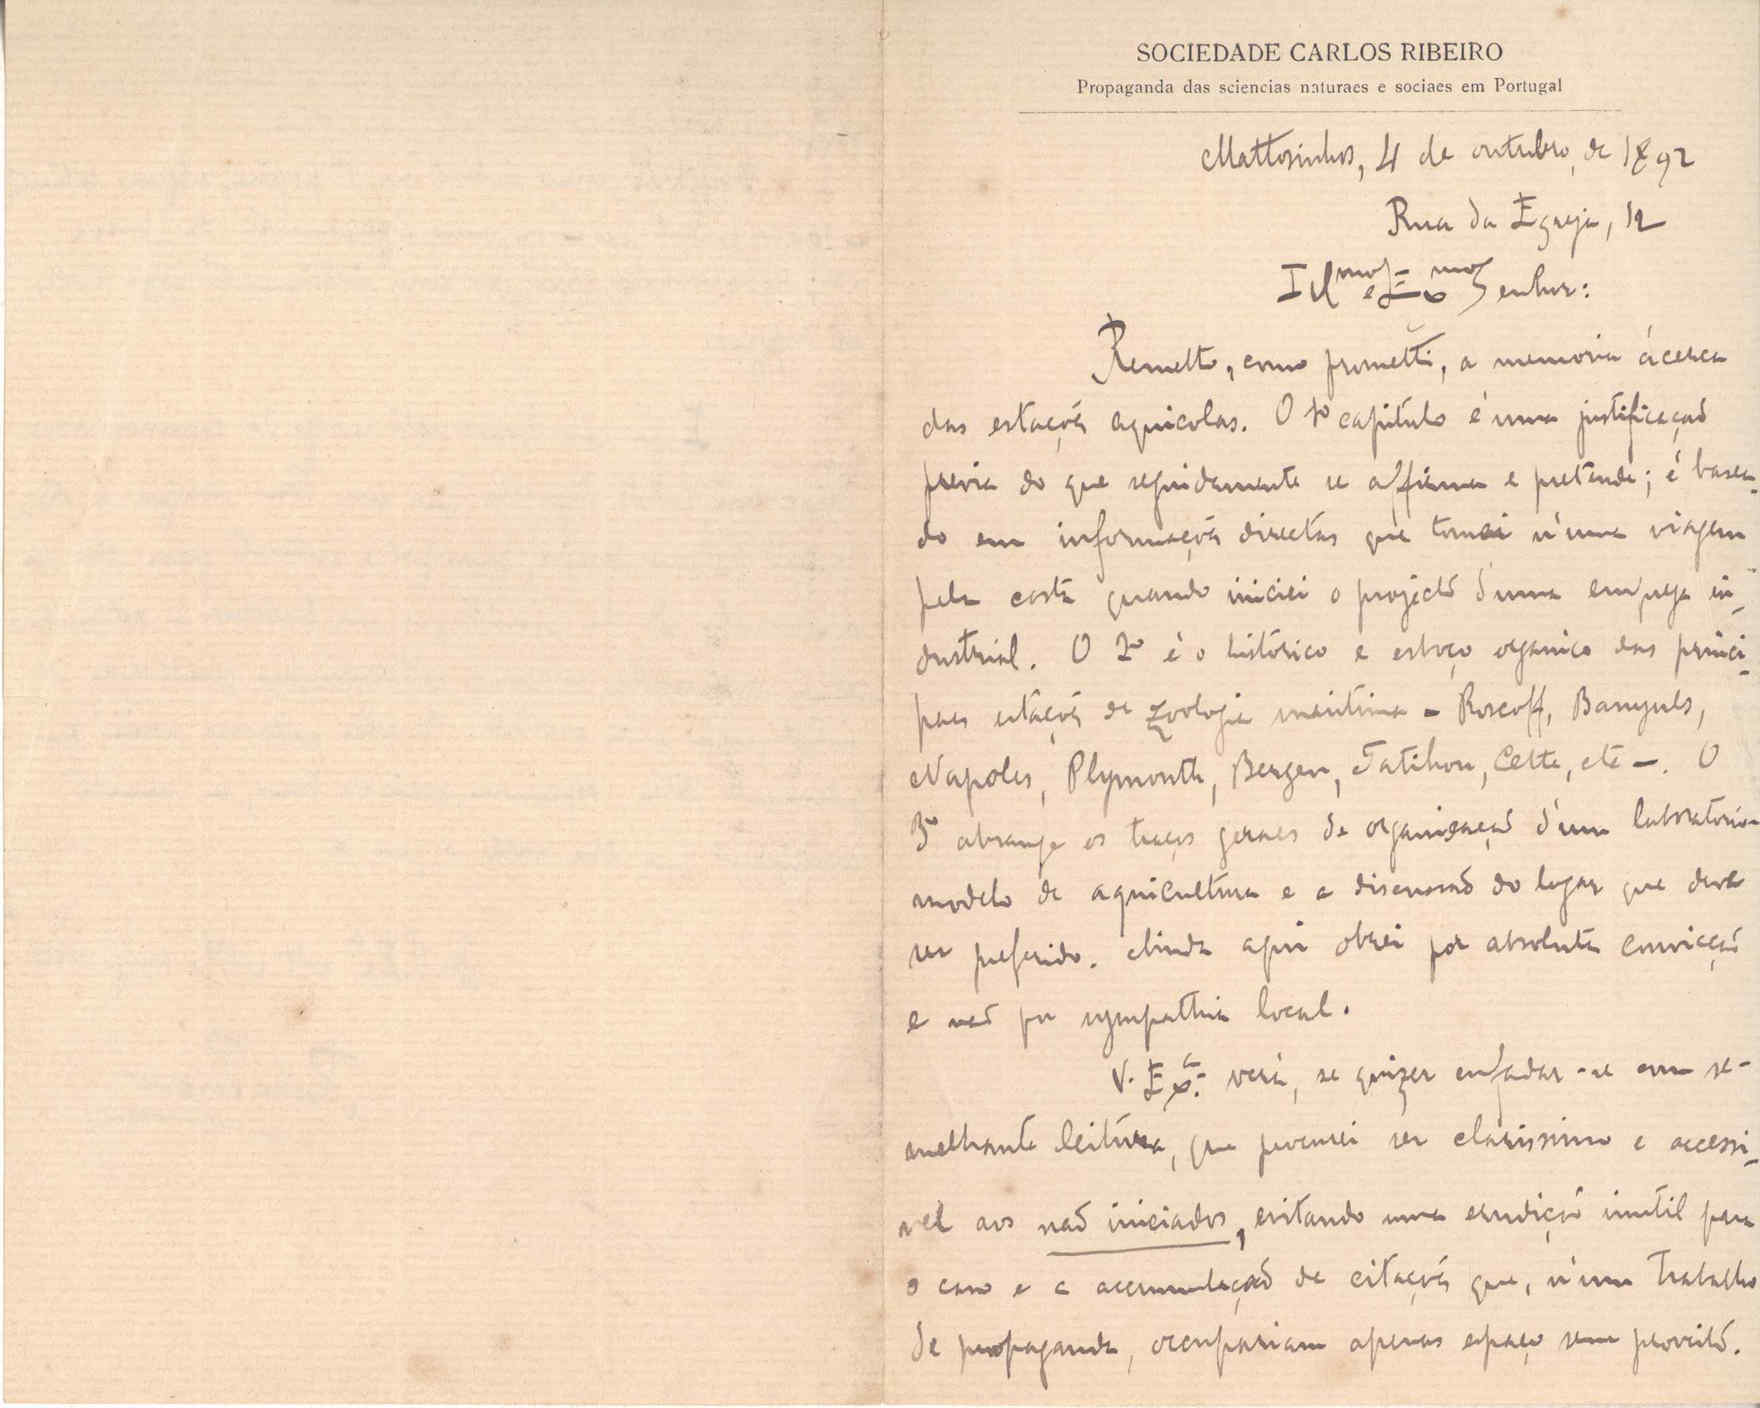 SOCIEDADE CARLOS RIBEIRO
Propaganda das sciencias naturaes e sociaes em Portugal
Mattosinhos, 4 de outubro, de 1892
Rua da Egreja, 12
Ill<sup>mo</sup> e Ex<sup>mo</sup> Senhor:
Remetto, como prometti, a memoria ácerca
das estações aquicolas. O 1º capitulo é uma justificação
previa do que seguidamente se affirma e pretende; é basea-
do em informações directas que tomei n'uma viagem
pela costa quando iniciei o projecto d'uma empreza in-
dustrial. O 2º é o historico e esboço organico das princi-
paes estações de zoologia maritima - Roscoff, Banyuls,
Napoles, Plymouth, Bergen, Tatihou, Cette, etc -. O
3º abrange os traços geraes da organisação d'um laboratorio
modelo de aquicultura e a discussão do logar que deve
ser preferido. Ainda aqui obrei por absoluta convicção
e não por sympathia local.
V. Ex.ª verá, se quizer enfadar-se em se-
melhante leitura, que procurei ser clarissimo e accessi-
vel aos não iniciados, evitando uma erudição inutil para
o caso e a accumulação de citações que, n'um trabalho
de propaganda, occupariam apenas espaço sem proveito.